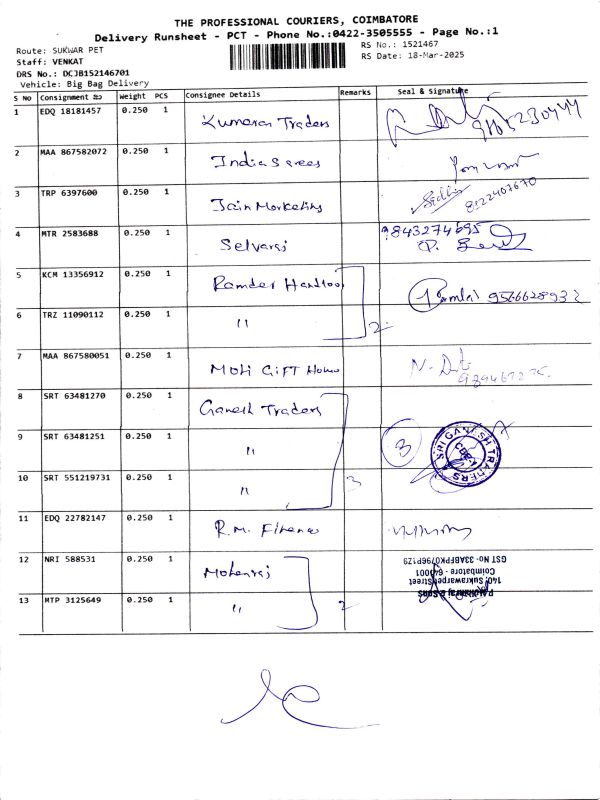 THE PROFESSIONAL COURIERS, COIMBATORE
Delivery Runsheet - PCT - Phone No.:0422-3505555 - Page No.:1
Route: SUKWAR PET
RS No.: 1521467
Staff: VENKAT
RS Date: 18-Mar-2025
DRS No.: DCJB152146701
Vehicle: Big Bag Delivery
S No Consignment No Weight PCS Consignee Details Remarks Seal & Signature
1 EDQ 18181457 0.250 1 Kumaran Traders
2 MAA 867582072 0.250 1 India Sarees
3 TRP 6397600 0.250 1 Jain Marketing
8122407670
4 MTR 2583688 0.250 1 Selvaraj 9843274695
5 KCM 13356912 0.250 1 Ramdev Handloo 9566628932
6 TRZ 11090112 0.250 1 " 2
7 MAA 867580051 0.250 1 Moti GIFT Home
8 SRT 63481270 0.250 1 Ganesh Traders
9 SRT 63481251 0.250 1 " 3 SRI GANESH TRADERS
10 SRT 551219731 0.250 1 " 3
11 EDQ 22782147 0.250 1 R.M. Finance
12 NRI 588531 0.250 1 Mohanraj
13 MTP 3125649 0.250 1 " 2
& SONS
140, Sukrawarpet Street
Coimbatore - 641001
GST No- 33ABFPK0796P1Z9